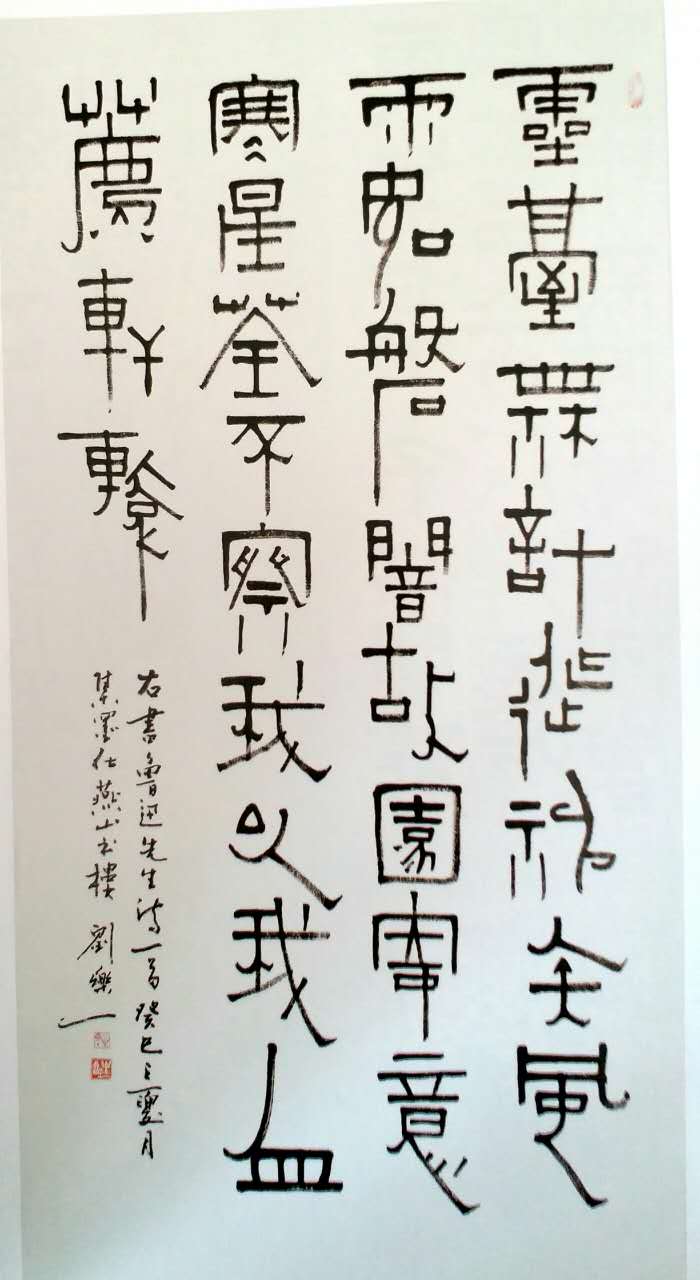 靈臺無計逃神矢風
雨如磐闇故園寄意
寒星荃不察我以我血
薦軒轅
右書魯迅先生詩一首癸巳之夏月
燕山书樓劉樂一